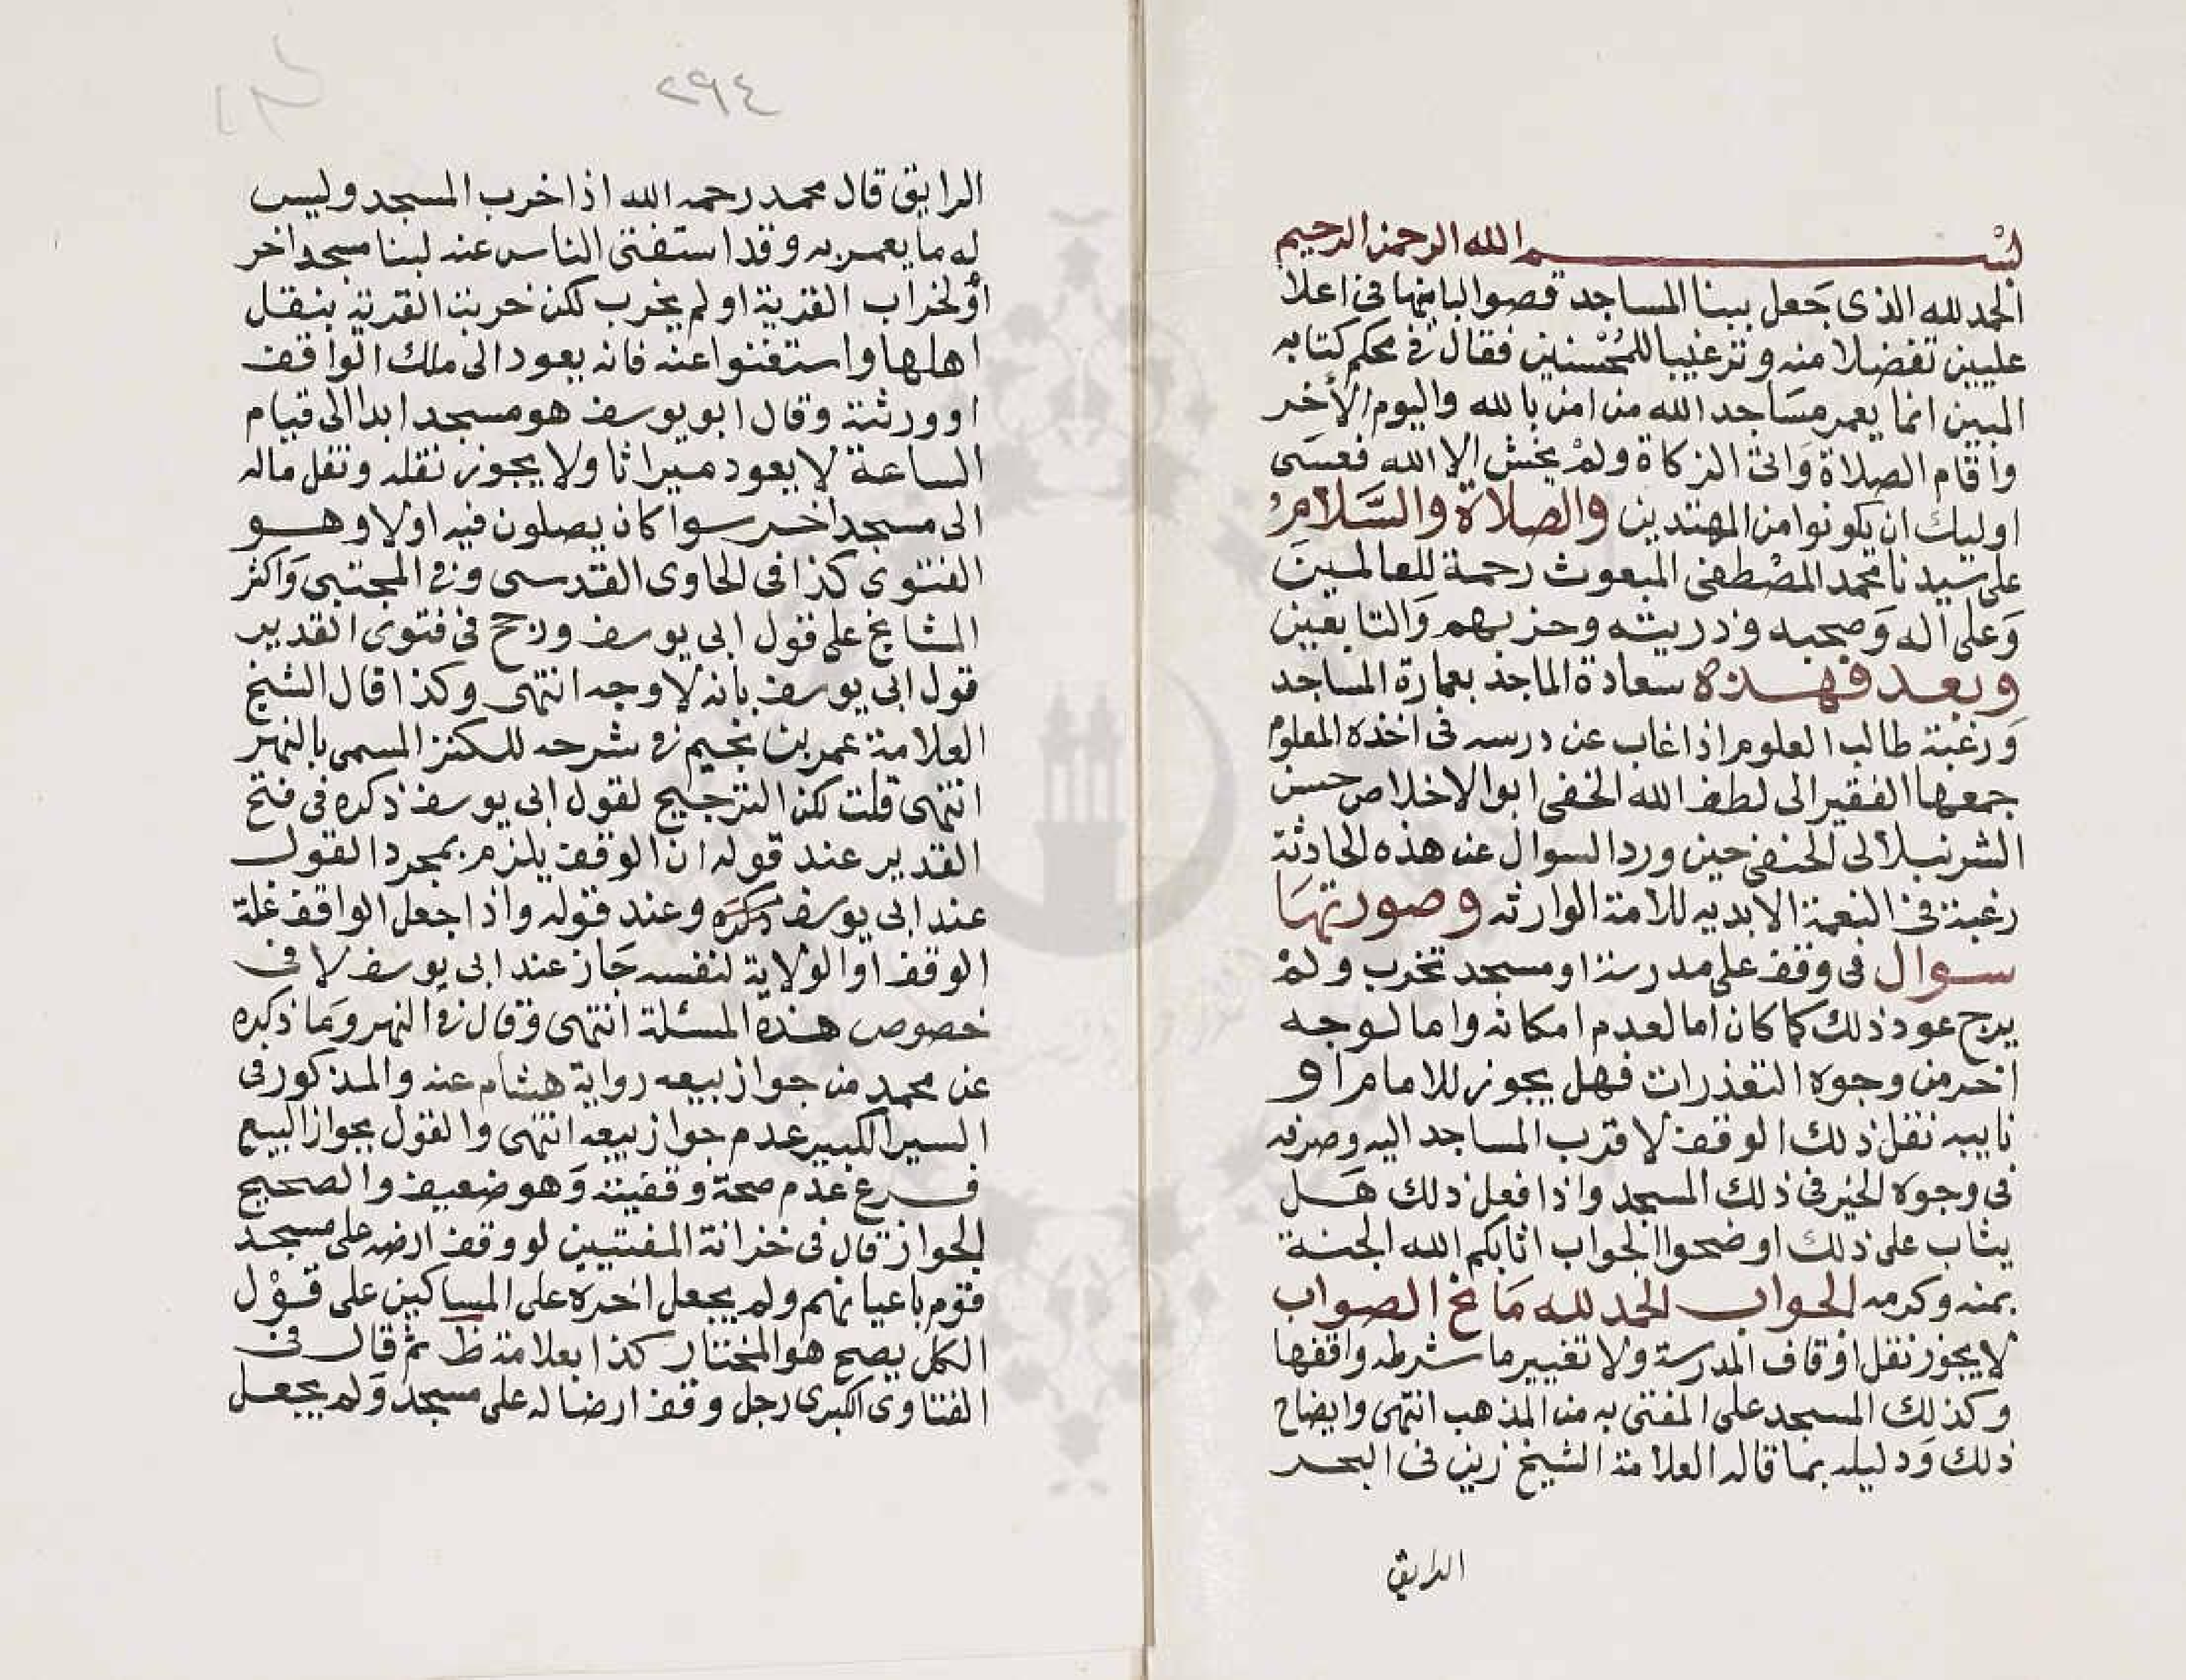 بسم الله الرحمن الرحيم
الحمد لله الذي جعل ببنا المساجد قصوا لبانيها في اعلا
عليين تفضلا منه وترغيبا للمحسنين فقال في محكم كتابه
المبين انما يعمر مساجد الله من امن بالله واليوم الأخر
واقام الصلاة واتى الزكاة ولم يخش الا الله فعسى
اوليك ان يكونوا من المهتدين والصلاة والسلام
على سيدنا محمد المصطفى المبعوث رحمة للعالمين
وعلى اله وصحبه وذريته وحزبهم والتابعين
وبعد فهذه سعادة الماجد بعمارة المساجد
ورغبة طالب العلوم اذا غاب عن درسه في اخذه المعلوم
جمعها الفقير الى لطف الله الخفي ابو الاخلاص حسن
الشرنبلالى الحنفي حين ورد السوال عن هذه الحادثة
رغبة في النعمة الابديه للامة الوارثه وصورتها
سوال في وقف على مدرسة او مسجد تخرب ولم
يرج عود ذلك كما كان اما لعدم امكانه واما لوجه
اخر من وجوه التعذرات فهل يجوز للامام او
نايبه نقل ذلك الوقف لاقرب المساجد اليه وصرفه
في وجوه الخير في ذلك المسجد واذا فعل ذلك هل
يثاب على ذلك اوضحوا الجواب اثابكم الله الجنة
بمنه وكرمه الجواب الحمد لله مانح الصواب
لا يجوز نقل اوقاف المدرسة ولا تغيير ما شرطه واقفها
وكذلك المسجد على المفتى به من المذهب انتهى وايضاح
ذلك ودليله بما قاله العلامة الشيخ زين في البحر
الرايق
٢٩٤
الرايق قال محمد رحمه الله اذا خرب المسجد وليس
له ما يعمر به وقد استغنى الناس عنه لبنا مسجد اخر
أو لخراب القرية او لم يخرب لكن خربت القرية بنقل
اهلها واستغنوا عنه فانه يعود الى ملك الواقف
او ورثته وقال ابو يوسف هو مسجد ابدا الى قيام
الساعة لا يعود ميراثا ولا يجوز نقله ونقل ماله
الى مسجد اخر سوا كان يصلون فيه اولا وهو
الفتوى كذا في الحاوى القدسى وفي المجتبى واكثر
المشايخ على قول ابى يوسف ورجح في فتوى القدير
قول ابى يوسف بانه لاوجه انتهى وكذا قال الشيخ
العلامة عمر بن نجيم في شرحه للكنز المسمى بالنهر
انتهى قلت لكن الترجيح لقول ابى يوسف ذكره في فتح
القدير عند قوله ان الوقف يلزم بمجرد القول
عند ابى يوسف وعند قوله واذا جعل الواقف غلة
الوقف او الولاية لنفسه جاز عند ابى يوسف لا في
خصوص هذه المسئلة انتهى وقال في النهر وما ذكره
عن محمد من جواز بيعه رواية هشام عنه والمذكور في
السير الكبير عدم جواز بيعه انتهى والقول بجواز البيع
فرع عدم صحة وقفيته وهو ضعيف والصحيح
الجواز قال في خزانة المفتيين لو وقف ارضه على مسجد
قوم باعيانهم ولم يجعل اخره على المساكين على قول
الكل يصح هو المختار كذا بعلامة ظ ثم قال في
الفتاوى الكبرى رجل وقف ارضا له على مسجد ولم يجعل